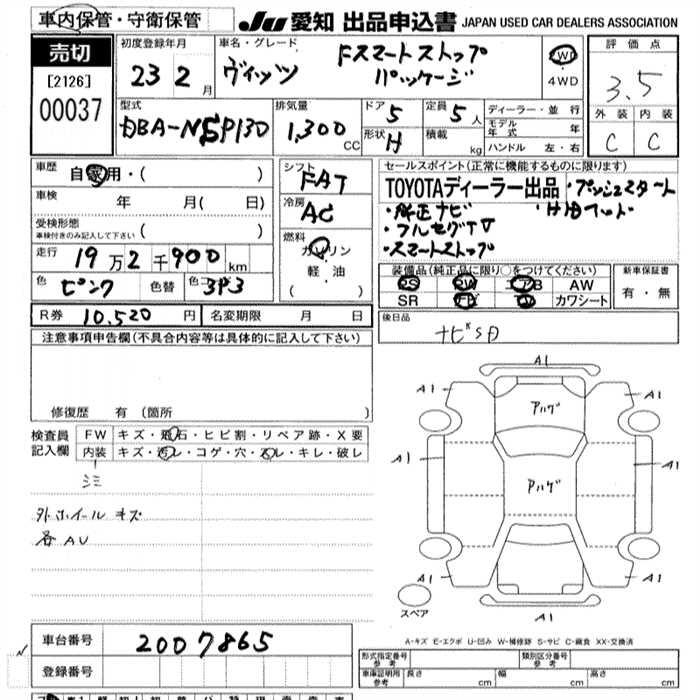 車内保管・守衛保管
JU 愛知 出品申込書 JAPAN USED CAR DEALERS ASSOCIATION
売切
[2126]
00037
初度登録年月
23 2 月
車名・グレード
ヴィッツ
Fスマートストップ
パッケージ
2WD
4WD
評価点
3.5
外装 内装
C C
型式
DBA-NSP130
排気量
1,300 CC
ドア 5
形状 H
定員 5 人
積載 kg
ディーラー・並行
モデル年式 年
ハンドル 左・右
車歴 自家用・( )
車検 年 月( 日)
受検形態
車検付きのみ記入して下さい ( )
走行 19万2千900 km
色 ピンク 色替 色コード 3P3
シフト FAT
冷房 AC
燃料 ガソリン
軽・油
( )
セールスポイント(正常に機能するものに限ります)
TOYOTAディーラー出品 ・プッシュスタート
・純正ナビ
・フルセグTV
・スマートストップ
装備品(純正品に限り○をつけてください)
PS PW エアB AW
SR ナビ TV カワシート
新車保証書
有・無
R券 10,520 円 名変期限 月 日
後日品
ナビSD
注意事項申告欄(不具合内容等は具体的に記入して下さい)
修復歴 有(箇所 )
検査員記入欄
FW キズ・飛石・ヒビ割・リペア跡・X要
内装 キズ・汚レ・コゲ・穴・スレ・キレ・破レ
シミ
外ホイールキズ
各AU
A1
A1 A1
アルゲ
A1 A1
A1 A1
アルゲ
A1 A1
A1
スペア
A-キズ E-エクボ U-凹み W-補修跡 S-サビ C-腐食 XX-交換済
車台番号 2007865
登録番号
形式指定番号 参考
類別区分番号 参考
車庫証明用 参考 長さ cm 幅 cm 高さ cm